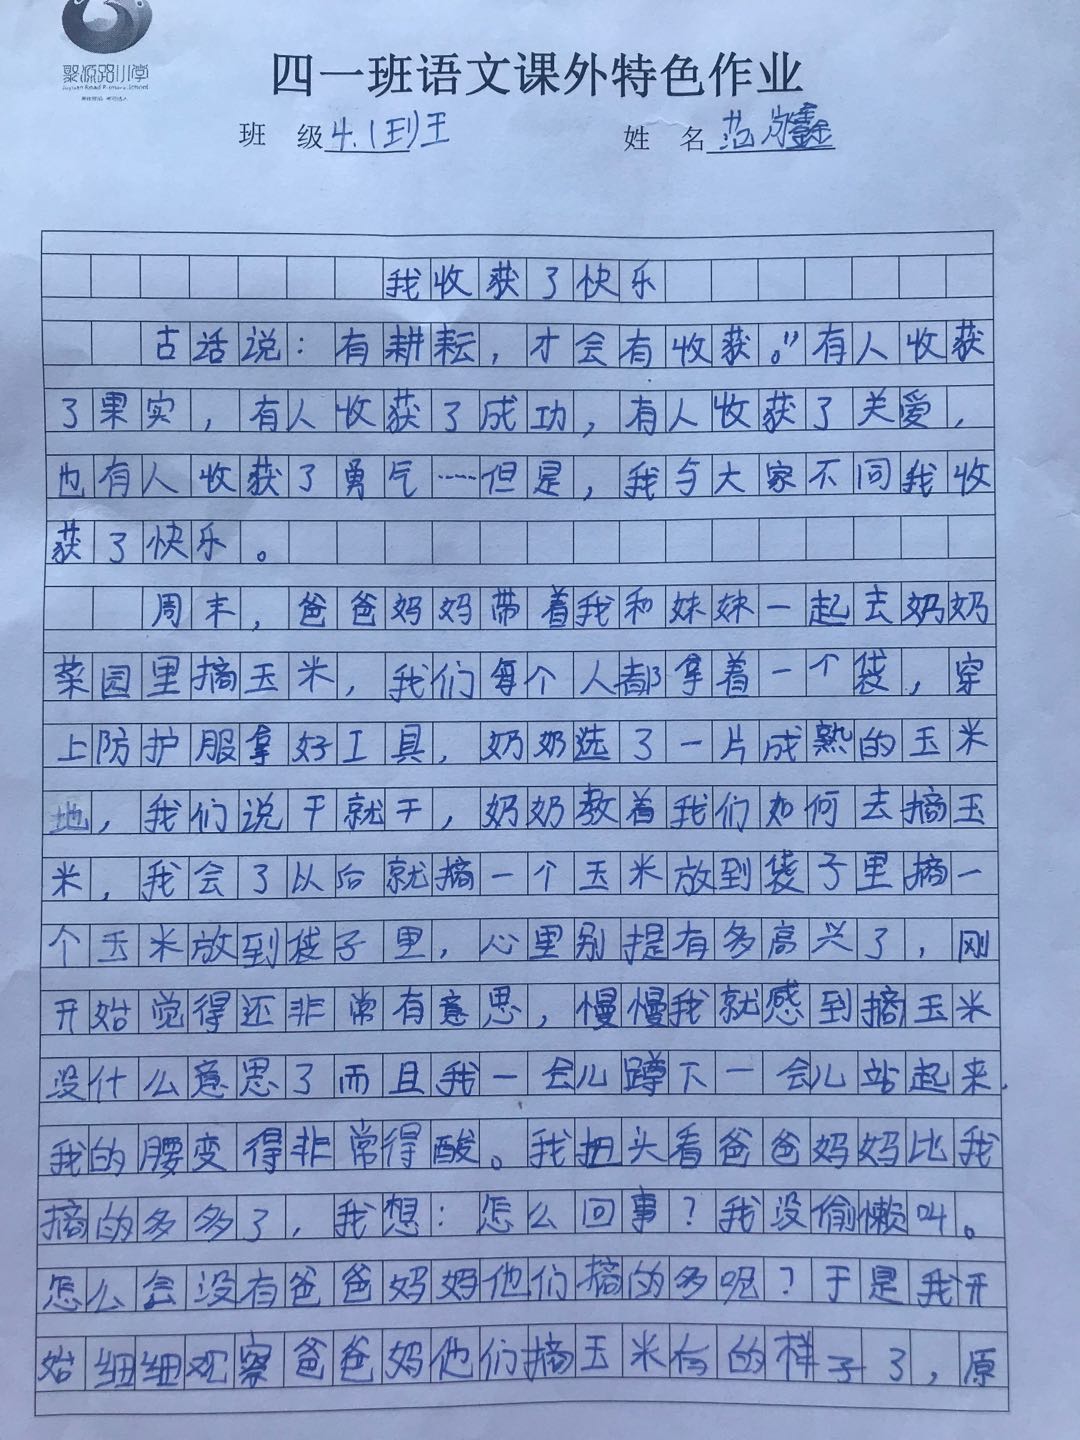 聚源路小学
Juyuan Road Primary School
四一班语文课外特色作业
班 级 4.1到王 姓 名 范
我收获了快乐
古话说：有耕耘，才会有收获。”有人收获
了果实，有人收获了成功，有人收获了关爱，
也有人收获了勇气……但是，我与大家不同我收
获了快乐。
周末，爸爸妈妈带着我和妹妹一起去奶奶
菜园里摘玉米，我们每个人都拿着一个袋，穿
上防护服拿好工具，奶奶选了一片成熟的玉米
地，我们说干就干，奶奶教着我们如何去摘玉
米，我会了以后就摘一个玉米放到袋子里摘一
个玉米放到袋子里，心里别提有多高兴了，刚
开始觉得还非常有意思，慢慢我就感到摘玉米
没什么意思了而且我一会儿蹲下一会儿站起来，
我的腰变得非常得酸。我扭头看爸爸妈妈比我
摘的多多了，我想：怎么回事？我没偷懒叫。
怎么会没有爸爸妈妈他们摘的多呢？于是我开
始细细观察爸爸妈他们摘玉米有的样子了，原